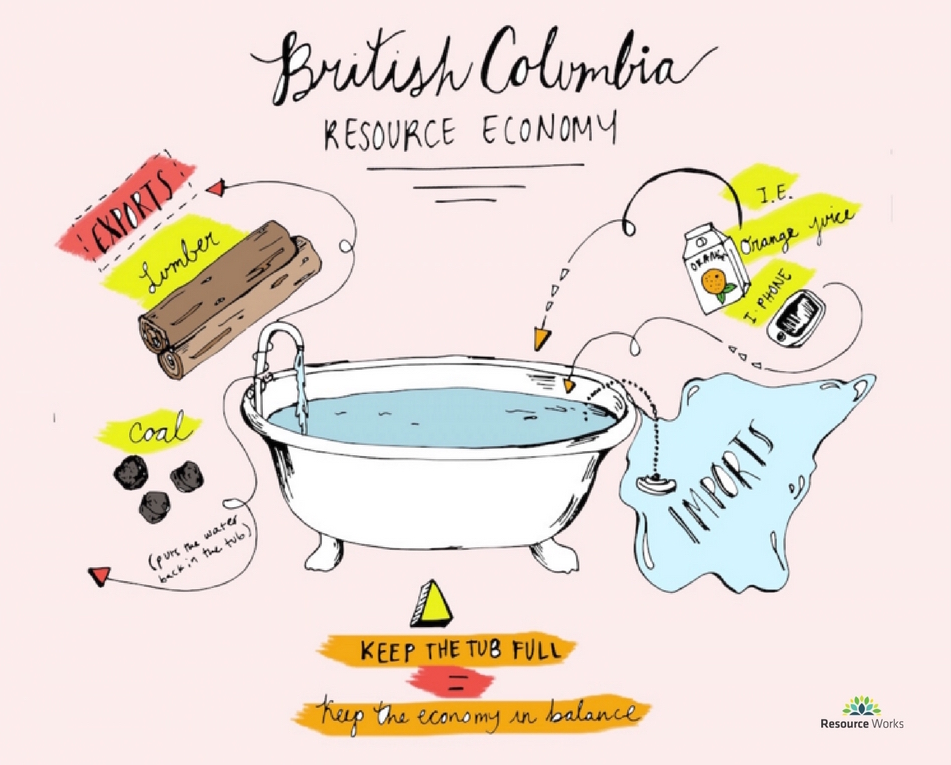 British Columbia
RESOURCE ECONOMY
EXPORTS
Lumber
I.E.
Orange juice
ORANGE
I.PHONE
coal
(puts the water
back in the tub)
IMPORTS
KEEP THE TUB FULL
=
Keep the economy in balance
Resource Works